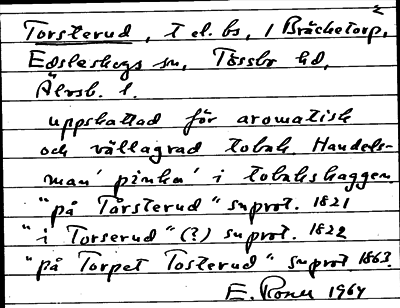 Torsterud, t el. bs, / Bräcketorp,
Edsleskogs sn, Tössbo hd,
Älvsb. l.
uppskattad för aromatisk
och vällagrad tobak. Handels-
man 'pinka' i tobakskaggen.
"på Torsterud" snprot. 1821
"i Torserud" (?) snprot. 1822
"på Torpet Tosterud" snprot 1863.
E. 1964